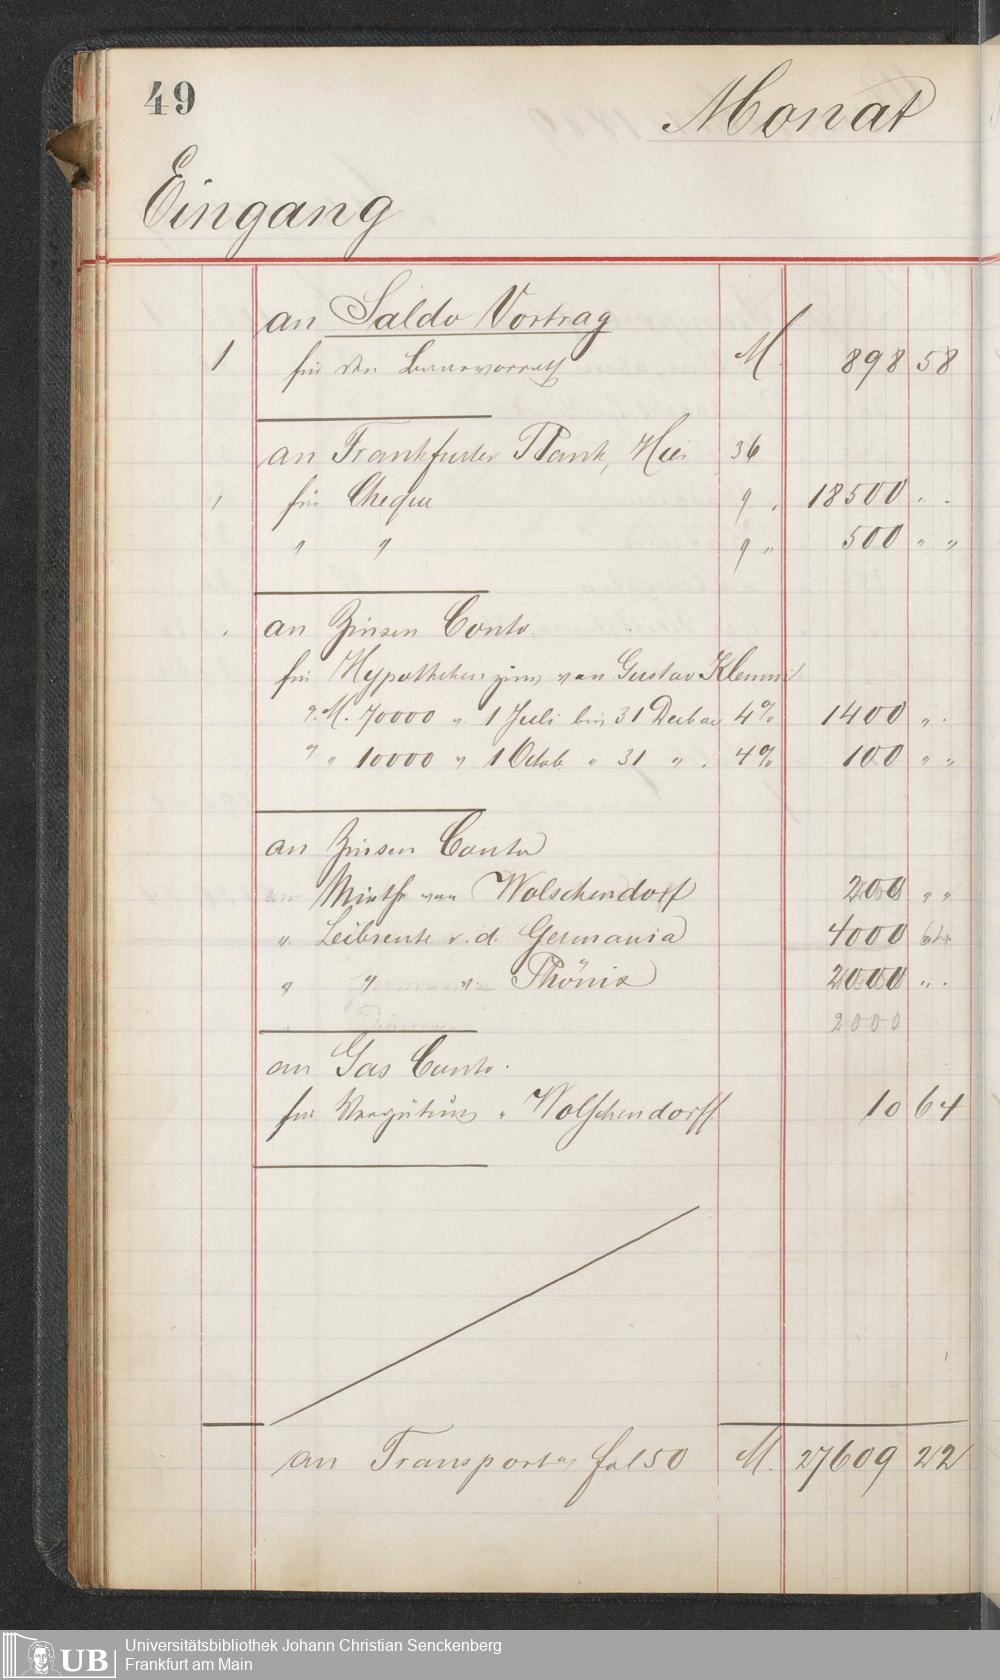 49
Monat
Eingang
an Saldo Vortrag
1 für den Baarvorrath M 898 58
an Frankfurter Bank, Hier 36
" für Cheque " " 18500 " "
" " " " 500 " "
" an Zinsen Conto
für Hypothekenzins von Gustav Klemm
" M. 70000 v. 1 Juli bis 31 Decbr 4% 1400 " "
" " 10000 " 1 Octob " 31 " . 4% 100 " "
an Zinsen Conto
Miethe von Wolschendorf 200 " "
" Leibrente v. d. Germania 4000 "
" " " Phönix 2000 " "
2000
an Gas Conto.
für Vergütung " Wolschendorff 10 64
an Transport a/ fol 50 M. 27609 22
Universitätsbibliothek Johann Christian Senckenberg
Frankfurt am Main
UB